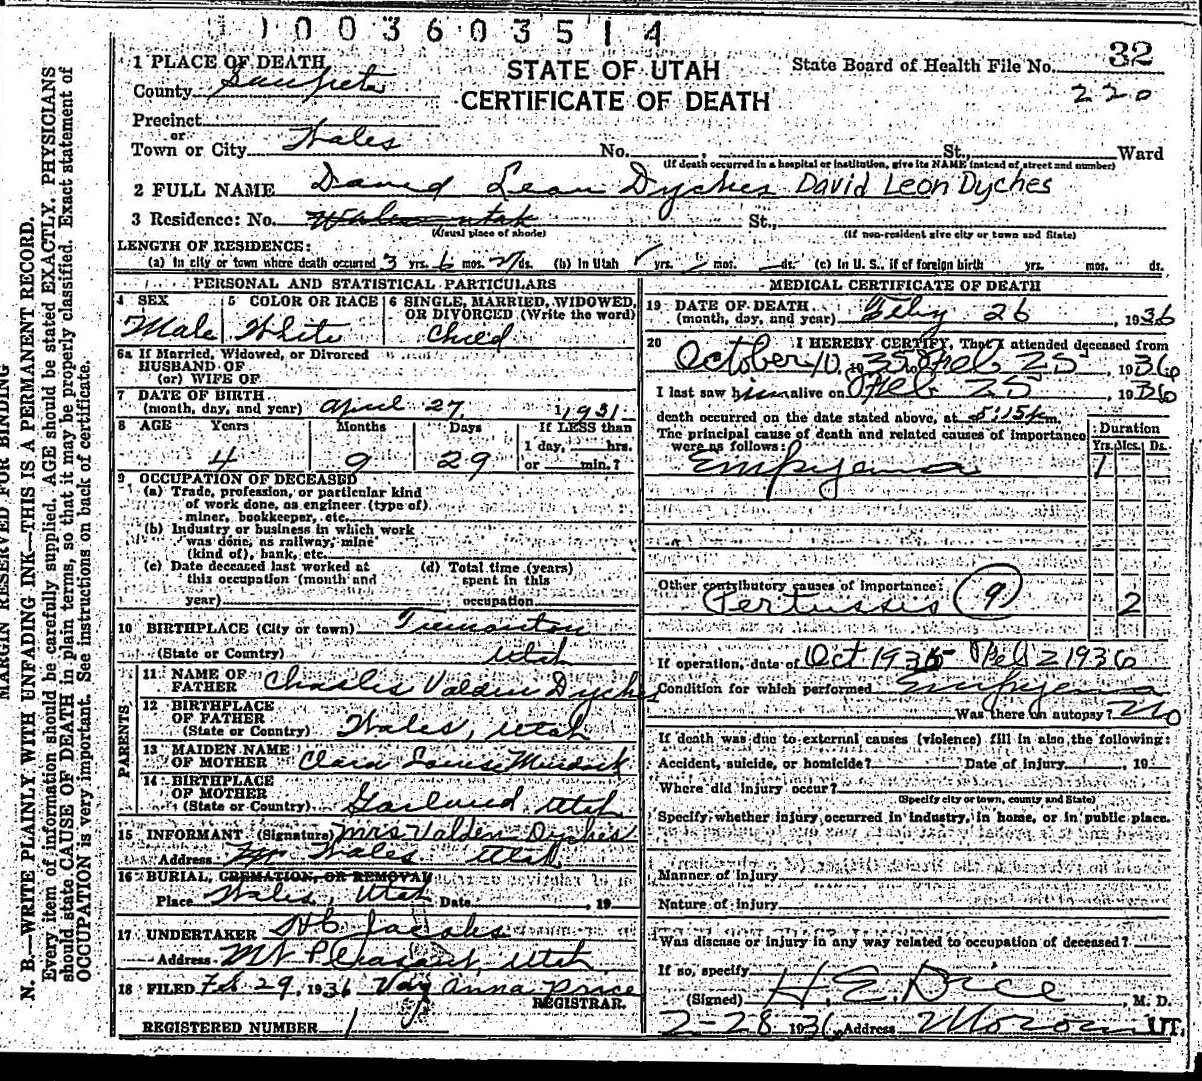 1003603514
1 PLACE OF DEATH
STATE OF UTAH
State Board of Health File No. 32
County Sanpete
CERTIFICATE OF DEATH
220
Precinct
or
Town or City Wales No. , St., Ward
(If death occurred in a hospital or institution, give its NAME instead of street and number)
2 FULL NAME David Leon Dyches David Leon Dyches
3 Residence: No. Wales Utah St.,
(Usual place of abode) (If non-resident give city or town and State)
LENGTH OF RESIDENCE:
(a) In city or town where death occurred 3 yrs. 6 mos. ds. (b) In Utah yrs. mos. ds. (c) In U. S., if of foreign birth yrs. mos. ds.
PERSONAL AND STATISTICAL PARTICULARS
4 SEX 5 COLOR OR RACE 6 SINGLE, MARRIED, WIDOWED, OR DIVORCED (Write the word)
Male White Child
6a If Married, Widowed, or Divorced
HUSBAND OF
(or) WIFE OF
7 DATE OF BIRTH
(month, day, and year) April 27 1931
8 AGE Years Months Days If LESS than
1 day, hrs.
4 9 29 or min.?
9 OCCUPATION OF DECEASED
(a) Trade, profession, or particular kind
of work done, as engineer (type of)
miner, bookkeeper, etc.
(b) Industry or business in which work
was done, as railway, mine
(kind of), bank, etc.
(c) Date deceased last worked at
this occupation (month and
year)
(d) Total time (years)
spent in this
occupation
10 BIRTHPLACE (City or town) Tremonton
(State or Country) Utah
PARENTS
11 NAME OF
FATHER Charles Valden Dyches
12 BIRTHPLACE
OF FATHER
(State or Country) Wales, Utah
13 MAIDEN NAME
OF MOTHER Clara Louise Murdock
14 BIRTHPLACE
OF MOTHER
(State or Country) Garland Utah
15 INFORMANT (Signature) Mrs Valden Dyches
Address Wales Utah
16 BURIAL, CREMATION, OR REMOVAL
Place Wales, Utah Date , 19
17 UNDERTAKER Jacobs
Address Mt Pleasant, Utah
18 FILED Feb 29, 1936 Anna Price
REGISTRAR.
REGISTERED NUMBER 1
MEDICAL CERTIFICATE OF DEATH
19 DATE OF DEATH
(month, day, and year) Feby 26, 1936
20 I HEREBY CERTIFY, That I attended deceased from
October 10, 1935 to Feb 25, 1936
I last saw him alive on Feb 25, 1936
death occurred on the date stated above, at 5:15 p m.
The principal cause of death and related causes of importance
were as follows:
Duration
Yrs. Mos. Ds.
Empyema 1
Other contributory causes of importance:
Pertussis 9 2
If operation, date of Oct 1935 Feb 2 1936
Condition for which performed Empyema
Was there an autopsy? No
If death was due to external causes (violence) fill in also the following:
Accident, suicide, or homicide? Date of injury , 19
Where did injury occur?
(Specify city or town, county and State)
Specify whether injury occurred in industry, in home, or in public place.
Manner of injury
Nature of injury
Was disease or injury in any way related to occupation of deceased?
If so, specify
(Signed) H. E. Dice, M. D.
2-28 1936 Address Moroni UT.
MARGIN RESERVED FOR BINDING
N. B.—WRITE PLAINLY WITH UNFADING INK—THIS IS A PERMANENT RECORD.
Every item of information should be carefully supplied. AGE should be stated EXACTLY. PHYSICIANS
should state CAUSE OF DEATH in plain terms, so that it may be properly classified. Exact statement of
OCCUPATION is very important. See instructions on back of certificate.